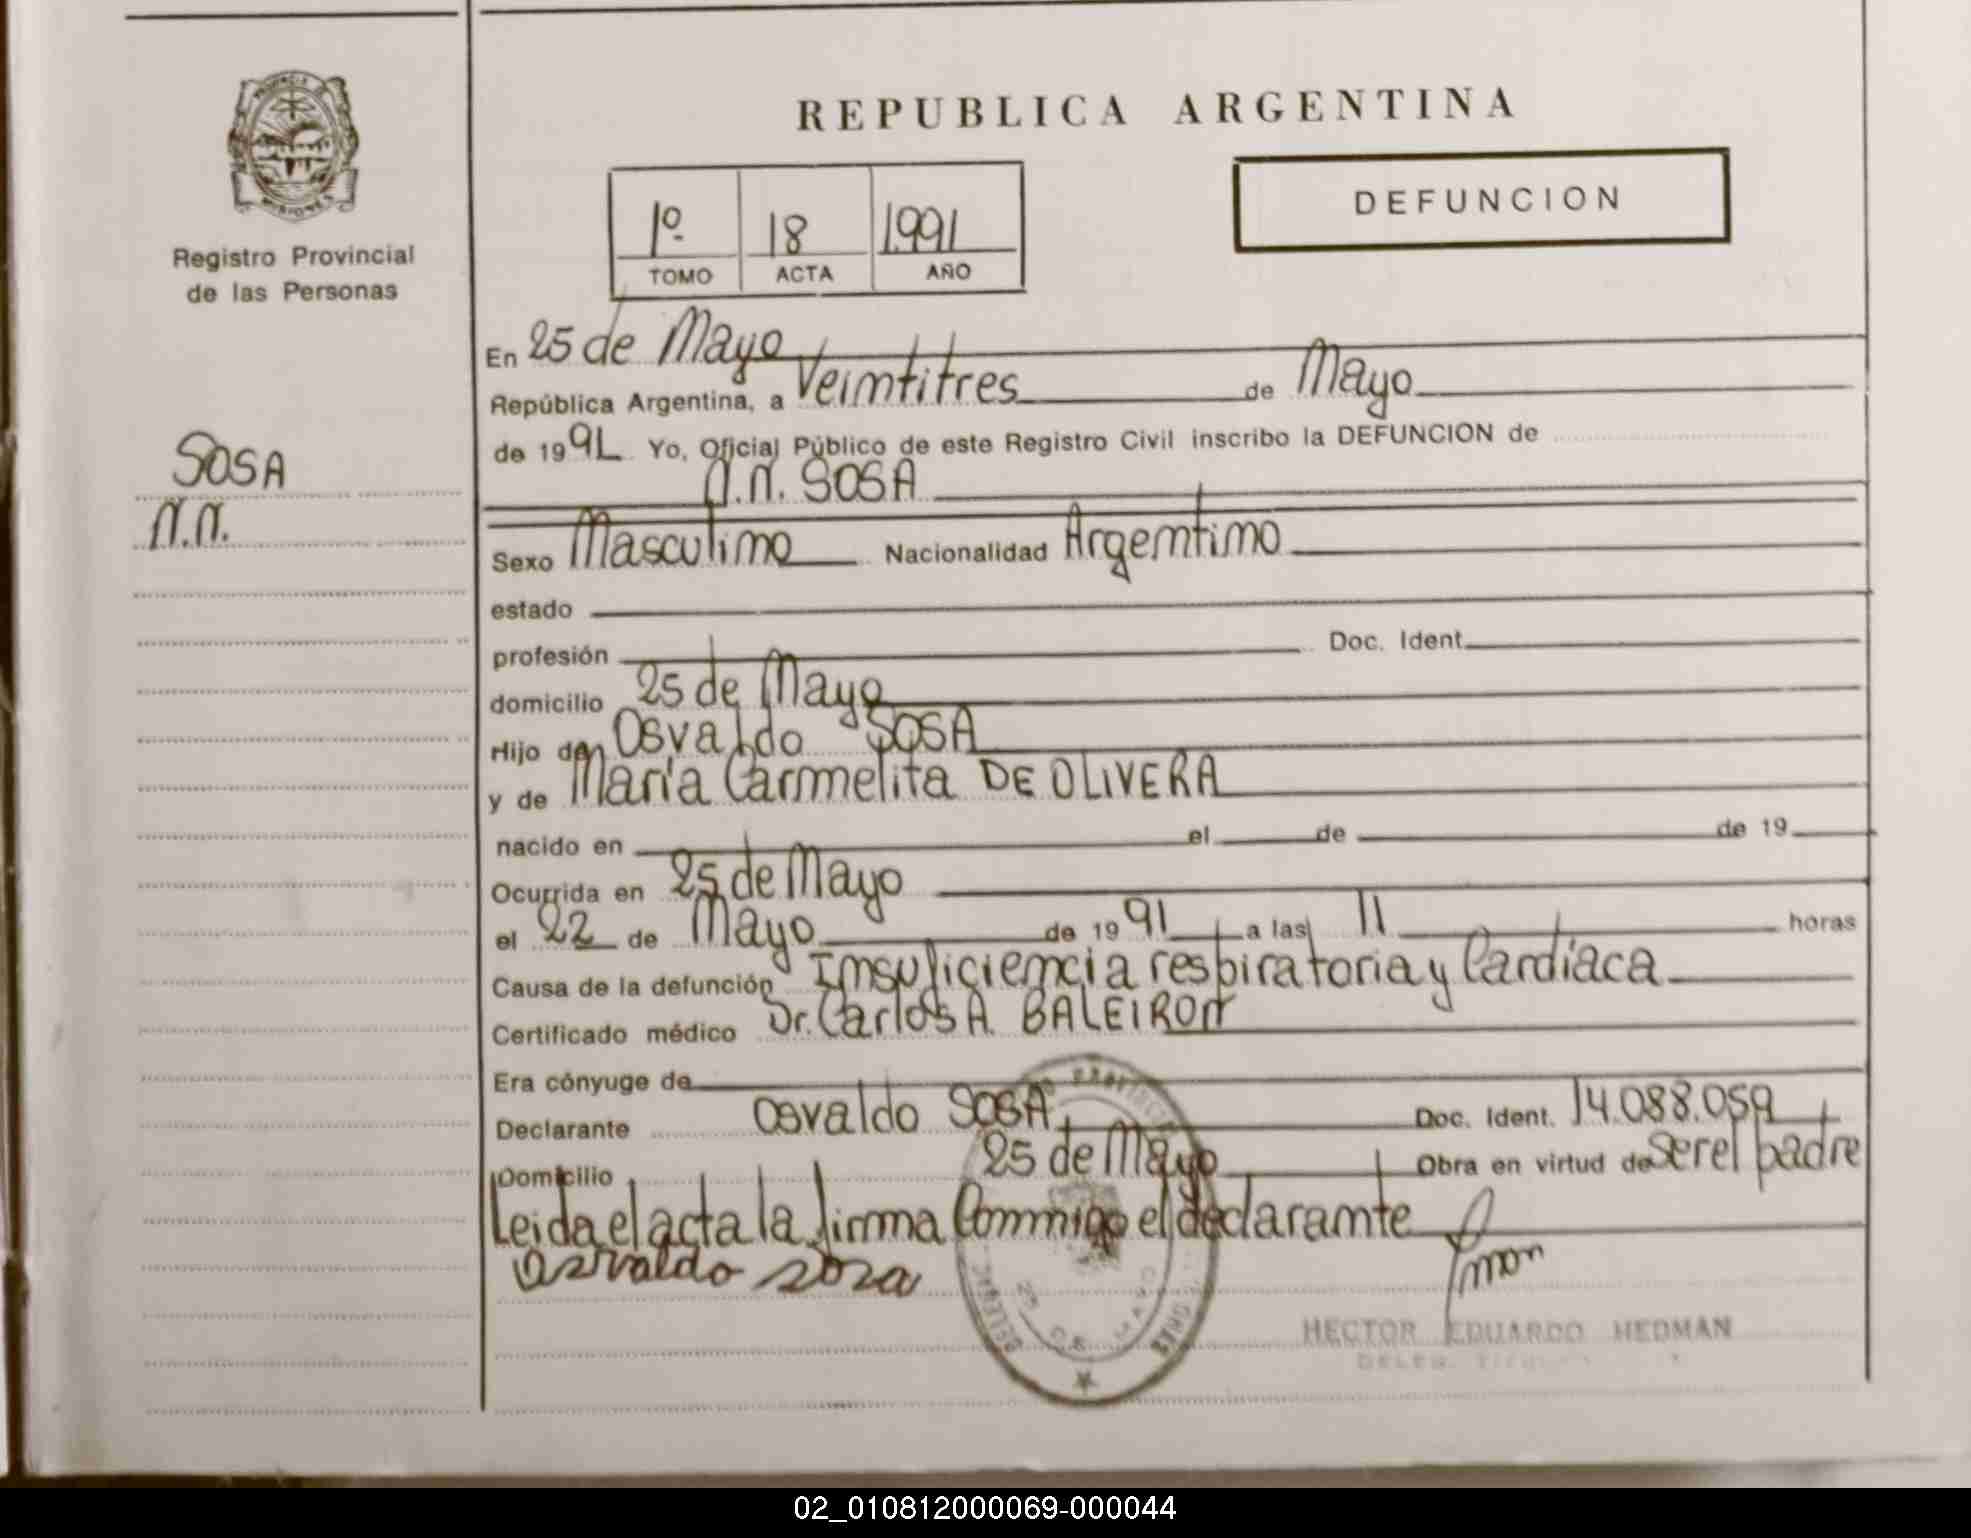 REPUBLICA ARGENTINA
MISIONES
Registro Provincial
de las Personas
1º 18 1991
TOMO ACTA AÑO
DEFUNCION
SOSA
N.N.
En 25 de Mayo
República Argentina, a Veintitres de Mayo
de 1991 Yo, Oficial Público de este Registro Civil inscribo la DEFUNCION de
N.N. SOSA
Sexo Masculino Nacionalidad Argentino
estado
profesión Doc. Ident.
domicilio 25 de Mayo
Hijo de Osvaldo SOSA
y de María Carmelita DE OLIVERA
nacido en el de de 19
Ocurrida en 25 de Mayo
el 22 de Mayo de 1991 a las 11 horas
Causa de la defunción Insuficiencia respiratoria y Cardíaca
Certificado médico Dr. Carlos A. BALEIRON
Era cónyuge de
Declarante Osvaldo SOSA Doc. Ident. 14.088.059
Domicilio 25 de Mayo Obra en virtud de Ser el padre
Leida el acta la firma Conmigo el declarante
Osvaldo Sosa
HECTOR EDUARDO HEDMAN
02_010812000069-000044